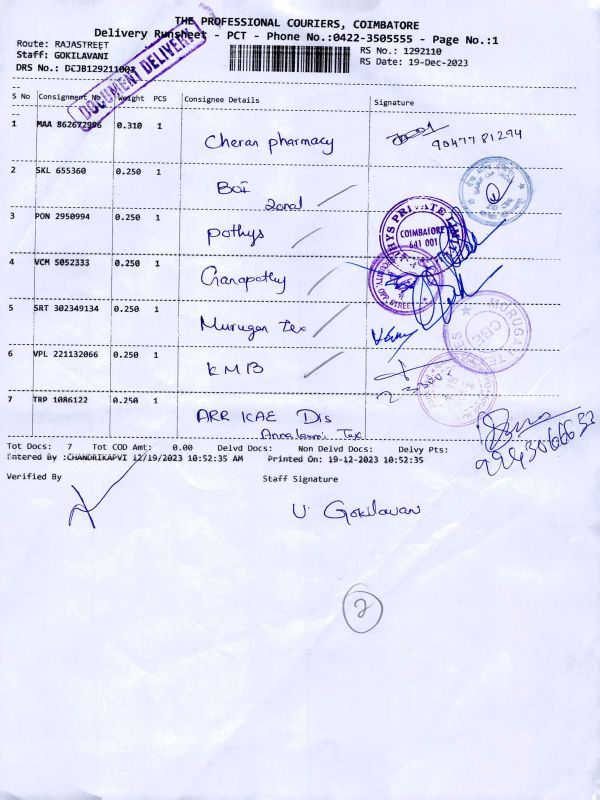 THE PROFESSIONAL COURIERS, COIMBATORE
Delivery Runsheet - PCT - Phone No.:0422-3505555 - Page No.:1
Route: RAJASTREET
Staff: GOKILAVANI
RS No.: 1292110
RS Date: 19-Dec-2023
DOCUMENT DELIVERY
S No Consignment No Weight PCS Consignee Details Signature
1 MAA 862672996 0.310 1 Cheran pharmacy 9047781294
2 SKL 655360 0.250 1 BOI
Zonal
3 PON 2950994 0.250 1 pothys
COIMBATORE
641 001
4 VCM 5052333 0.250 1 Ganapathy
5 SRT 302349134 0.250 1 Murugan Tex
6 VPL 221132066 0.250 1 KMB
7 TRP 1086122 0.250 1 ARR KAE Dis
Annalaxmi Tax
Tot Docs: 7 Tot COD Amt: 0.00 Delvd Docs: Non Delvd Docs: Delvy Pts:
Entered By :CHANDRIKAPVI 12/19/2023 10:52:35 AM Printed On: 19-12-2023 10:52:35
Verified By Staff Signature
U. Gokilavan
2